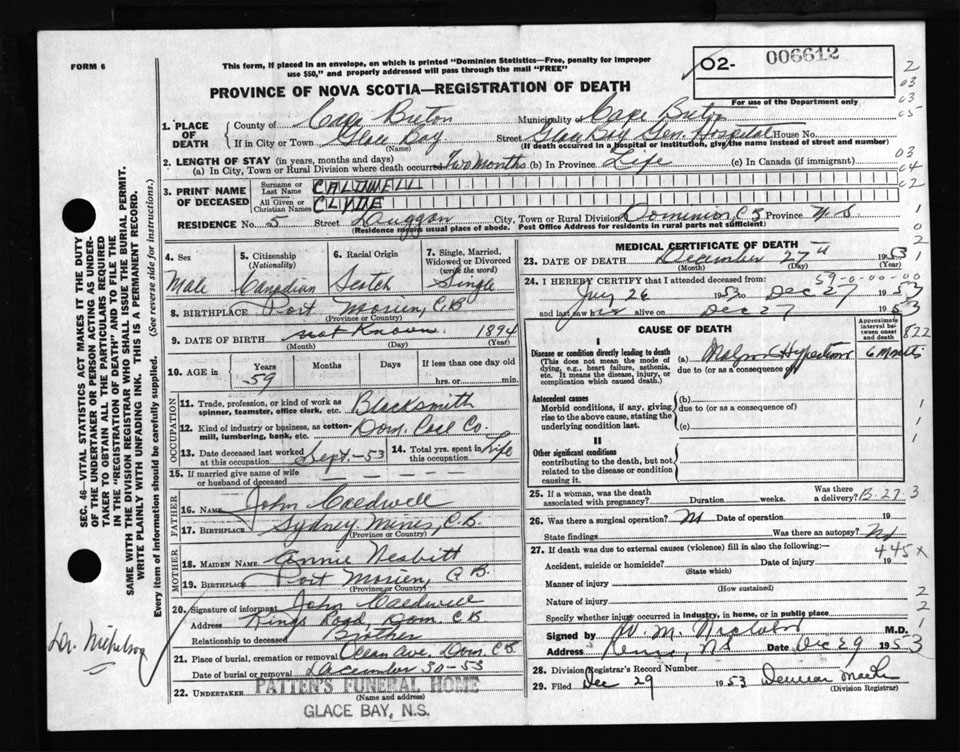 FORM 6
This form, if placed in an envelope, on which is printed "Dominion Statistics—Free, penalty for improper
use $50," and properly addressed will pass through the mail "FREE"
PROVINCE OF NOVA SCOTIA—REGISTRATION OF DEATH
02- 006612
For use of the Department only
1. PLACE OF DEATH
County of Cape Breton Municipality of Cape Breton
If in City or Town Glace Bay Street Glace Bay Gen. Hospital House No.
(Name) (If death occurred in a hospital or institution, give the name instead of street and number)
2. LENGTH OF STAY (in years, months and days)
(a) In City, Town or Rural Division where death occurred Two Months (b) In Province Life (c) In Canada (if immigrant)
3. PRINT NAME OF DECEASED
Surname or Last Name CALDWELL
All Given or Christian Names CLYDE
RESIDENCE No. 5 Street Duggan City, Town or Rural Division Dominion, C B Province N S
(Residence means usual place of abode. Post Office Address for residents in rural parts not sufficient)
4. Sex Male
5. Citizenship (Nationality) Canadian
6. Racial Origin Scotch
7. Single, Married, Widowed or Divorced (write the word) Single
8. BIRTHPLACE Port Morien, C.B
(Province or Country)
9. DATE OF BIRTH not Known 1894
(Month) (Day) (Year)
10. AGE in Years 59 Months Days If less than one day old
hrs. or min.
OCCUPATION
11. Trade, profession, or kind of work as spinner, teamster, office clerk, etc. Blacksmith
12. Kind of industry or business, as cotton-mill, lumbering, bank, etc. Dom. Coal Co.
13. Date deceased last worked at this occupation Sept-53 14. Total yrs. spent in this occupation Life
15. If married give name of wife or husband of deceased
FATHER
16. NAME John Caldwell
17. BIRTHPLACE Sydney Mines, C.B.
(Province or Country)
MOTHER
18. MAIDEN NAME Annie Nesbitt
19. BIRTHPLACE Port Morien, C B.
(Province or Country)
20. Signature of informant John Caldwell
Address Kings Road, Dom. C B
Relationship to deceased Brother
21. Place of burial, cremation or removal Ocean Ave. Dom. C B
Date of burial or removal December 30-53
22. UNDERTAKER PATTEN'S FUNERAL HOME
(Name and address)
GLACE BAY, N.S.
MEDICAL CERTIFICATE OF DEATH
23. DATE OF DEATH December 27th 1953
(Month) (Day) (Year)
59-0-00-00
24. I HEREBY CERTIFY that I attended deceased from:
July 26 1953 to Dec 27 1953
and last saw him alive on Dec 27 1953
CAUSE OF DEATH
Approximate interval between onset and death
822
I
Disease or condition directly leading to death
(This does not mean the mode of dying, e.g., heart failure, asthenia, etc. It means the disease, injury, or complication which caused death.)
(a) Malign Hypertension 6 months
due to (or as a consequence of)
Antecedent causes
Morbid conditions, if any, giving rise to the above cause, stating the underlying condition last.
(b)
due to (or as a consequence of)
(c)
II
Other significant conditions
contributing to the death, but not related to the disease or condition causing it.
25. If a woman, was the death associated with pregnancy? Duration weeks. Was there a delivery? B-27-3
26. Was there a surgical operation? No Date of operation 19
State findings Was there an autopsy? No
27. If death was due to external causes (violence) fill in also the following:—
445X
Accident, suicide or homicide? Date of injury 19
(State which)
Manner of injury
(How sustained)
Nature of injury
Specify whether injury occurred in industry, in home, or in public place
Signed by W. M. M.D.
Address N S Date Dec 29 1953
28. Division Registrar's Record Number
29. Filed Dec 29 1953
(Division Registrar)
SEC. 46—VITAL STATISTICS ACT MAKES IT THE DUTY
OF THE UNDERTAKER OR PERSON ACTING AS UNDER-
TAKER TO OBTAIN ALL THE PARTICULARS REQUIRED
IN THE "REGISTRATION OF DEATH" AND TO FILE THE
SAME WITH THE DIVISION REGISTRAR WHO SHALL ISSUE THE BURIAL PERMIT.
WRITE PLAINLY WITH UNFADING INK. THIS IS A PERMANENT RECORD.
Every item of information should be carefully supplied. (See reverse side for instructions.)
Dr. Nicholson
2
03
03
05
03
04
02
1
1
0
2
1
1
1
2
2
1